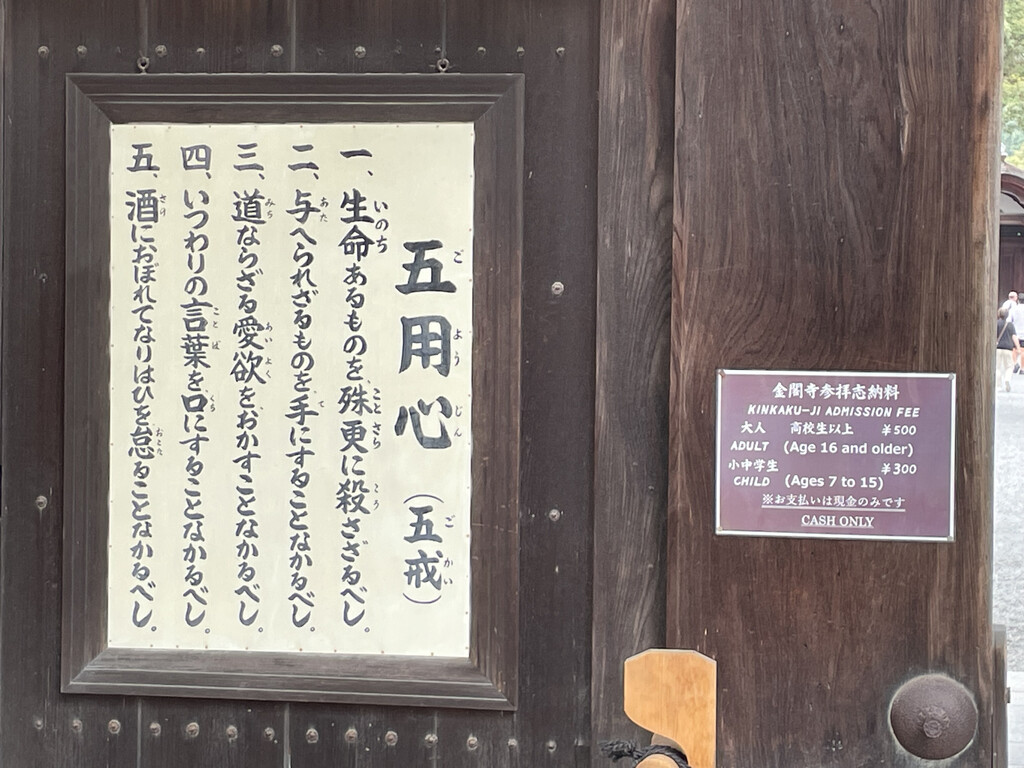 五用心（五戒）
一、生命あるものを殊更に殺さざるべし。
二、与へられざるものを手にすることなかるべし。
三、道ならざる愛欲をおかすことなかるべし。
四、いつわりの言葉を口にすることなかるべし。
五、酒におぼれてなりはひを怠ることなかるべし。
金閣寺参拝志納料
KINKAKU-JI ADMISSION FEE
大人 高校生以上 ¥500
ADULT (Age 16 and older)
小中学生 ¥300
CHILD (Ages 7 to 15)
※お支払いは現金のみです
CASH ONLY